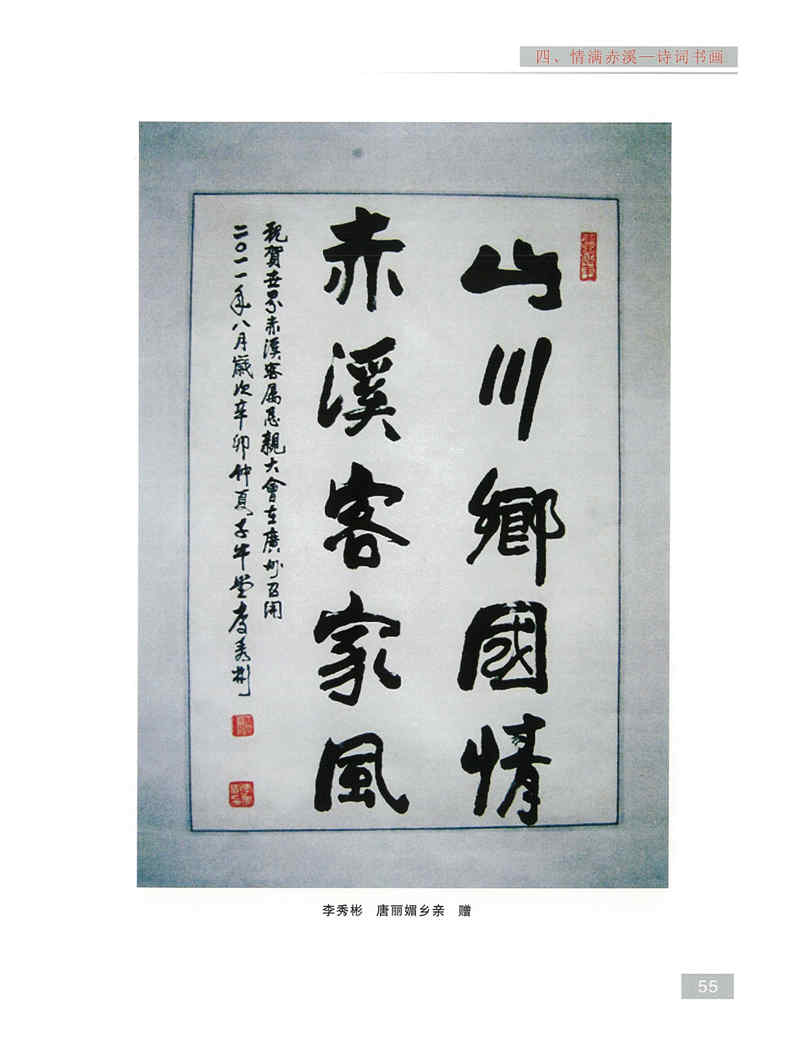 四、情满赤溪—诗词书画
山川鄉國情
赤溪客家風
祝賀世界赤溪客属恳親大會在廣州召開
二〇一一年八月歲次辛卯仲夏子牛堂李秀彬
李秀彬 唐丽媚乡亲 赠
55